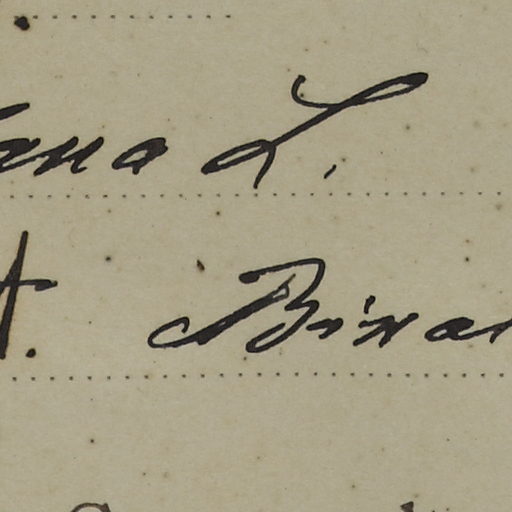 ana L.
A. Binar